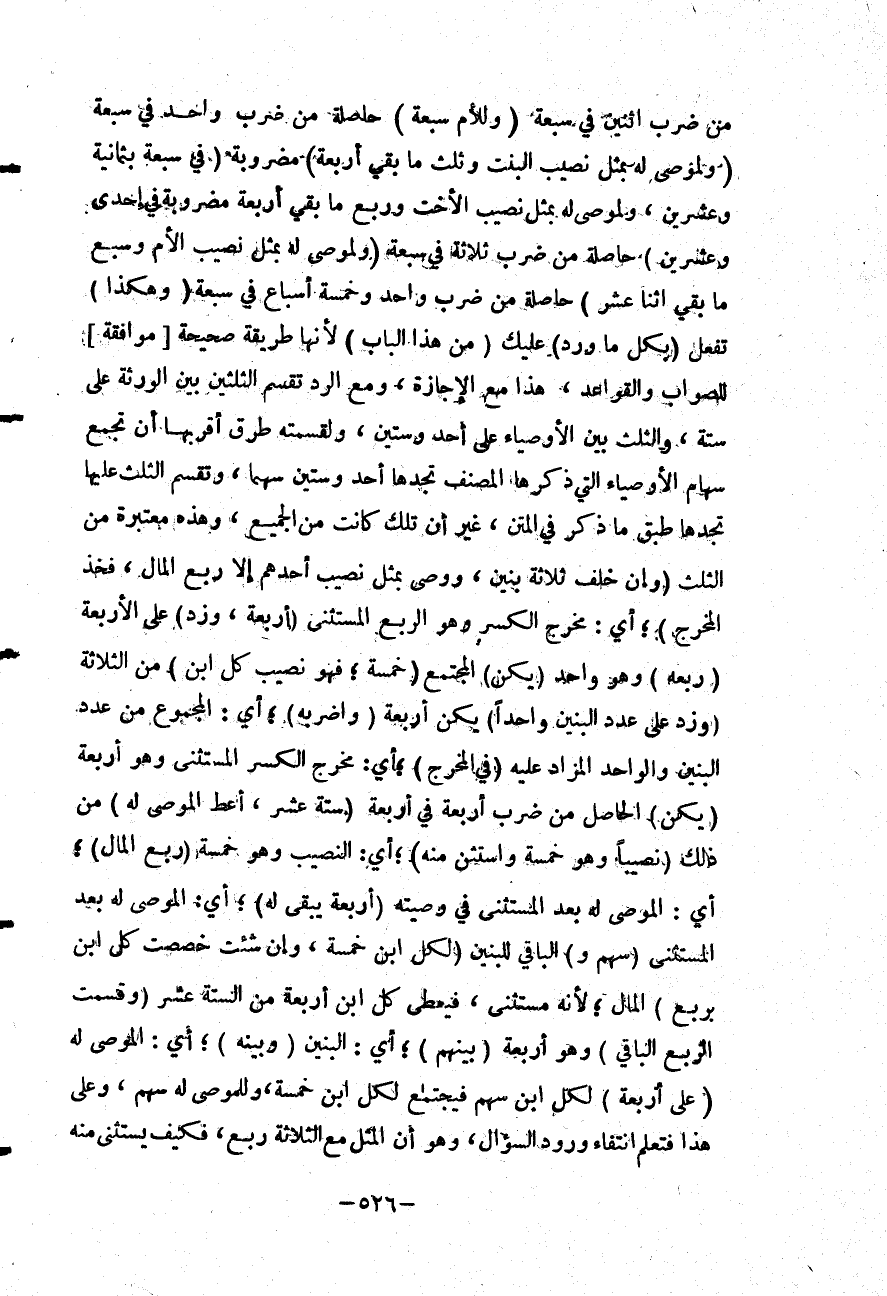 من ضرب اثنين في سبعة ( وللأم سبعة ) حاصلة من ضرب واحد في سبعة
( ولموصى له بمثل نصيب البنت وثلث ما بقي أربعة ) مضروبة ( في سبعة بثمانية
وعشرين ، ولموصى له بمثل نصيب الأخت وربع ما بقي أربعة مضروبة في إحدى
وعشرين ) حاصلة من ضرب ثلاثة في سبعة ( ولموصى له بمثل نصيب الأم وسبع
ما بقي اثنا عشر ) حاصلة من ضرب واحد وخمسة أسباع في سبعة ( وهكذا )
تفعل ( بكل ما ورد ) عليك ( من هذا الباب ) لأنها طريقة صحيحة [ موافقة ]
للصواب والقواعد ، هذا مع الإجازة ، ومع الرد تقسم الثلثين بين الورثة على
ستة ، والثلث بين الأوصياء على أحد وستين ، ولقسمته طرق أقربها أن تجمع
سهام الأوصياء التي ذكرها المصنف تجدها أحد وستين سهما ، وتقسم الثلث عليها
تجدها طبق ما ذكر في المتن ، غير أن تلك كانت من الجميع ، وهذه معتبرة من
الثلث ( وإن خلف ثلاثة بنين ، ووصى بمثل نصيب أحدهم إلا ربع المال ، فخذ
المخرج ) ؛ أي : مخرج الكسر وهو الربع المستثنى ( أربعة ، وزد ) على الأربعة
( ربعه ) وهو واحد ( يكن ) المجتمع ( خمسة ؛ فهو نصيب كل ابن ) من الثلاثة
( وزد على عدد البنين واحداً ) يكن أربعة ( واضربه ) ؛ أي : المجموع من عدد
البنين والواحد المزاد عليه ( في المخرج ) ؛ أي : مخرج الكسر المستثنى وهو أربعة
( يكن ) الحاصل من ضرب أربعة في أربعة ( ستة عشر ، أعط الموصى له ) من
ذلك ( نصيباً وهو خمسة واستثن منه ) ؛ أي : النصيب وهو خمسة ( ربع المال ) ؛
أي : الموصى له بعد المستثنى في وصيته ( أربعة يبقى له ) ؛ أي : الموصى له بعد
المستثنى ( سهم و ) الباقي للبنين ( لكل ابن خمسة ، وإن شئت خصصت كل ابن
بربع ) المال ؛ لأنه مستثنى ، فيعطى كل ابن أربعة من الستة عشر ( وقسمت
الربع الباقي ) وهو أربعة ( بينهم ) ؛ أي : البنين ( وبينه ) ؛ أي : الموصى له
( على أربعة ) لكل ابن سهم فيجتمع لكل ابن خمسة ، وللموصى له سهم ، وعلى
هذا فتعلم انتفاء ورود السؤال ، وهو أن المثل مع الثلاثة ربع ، فكيف يستثنى منه
-٥٢٦-